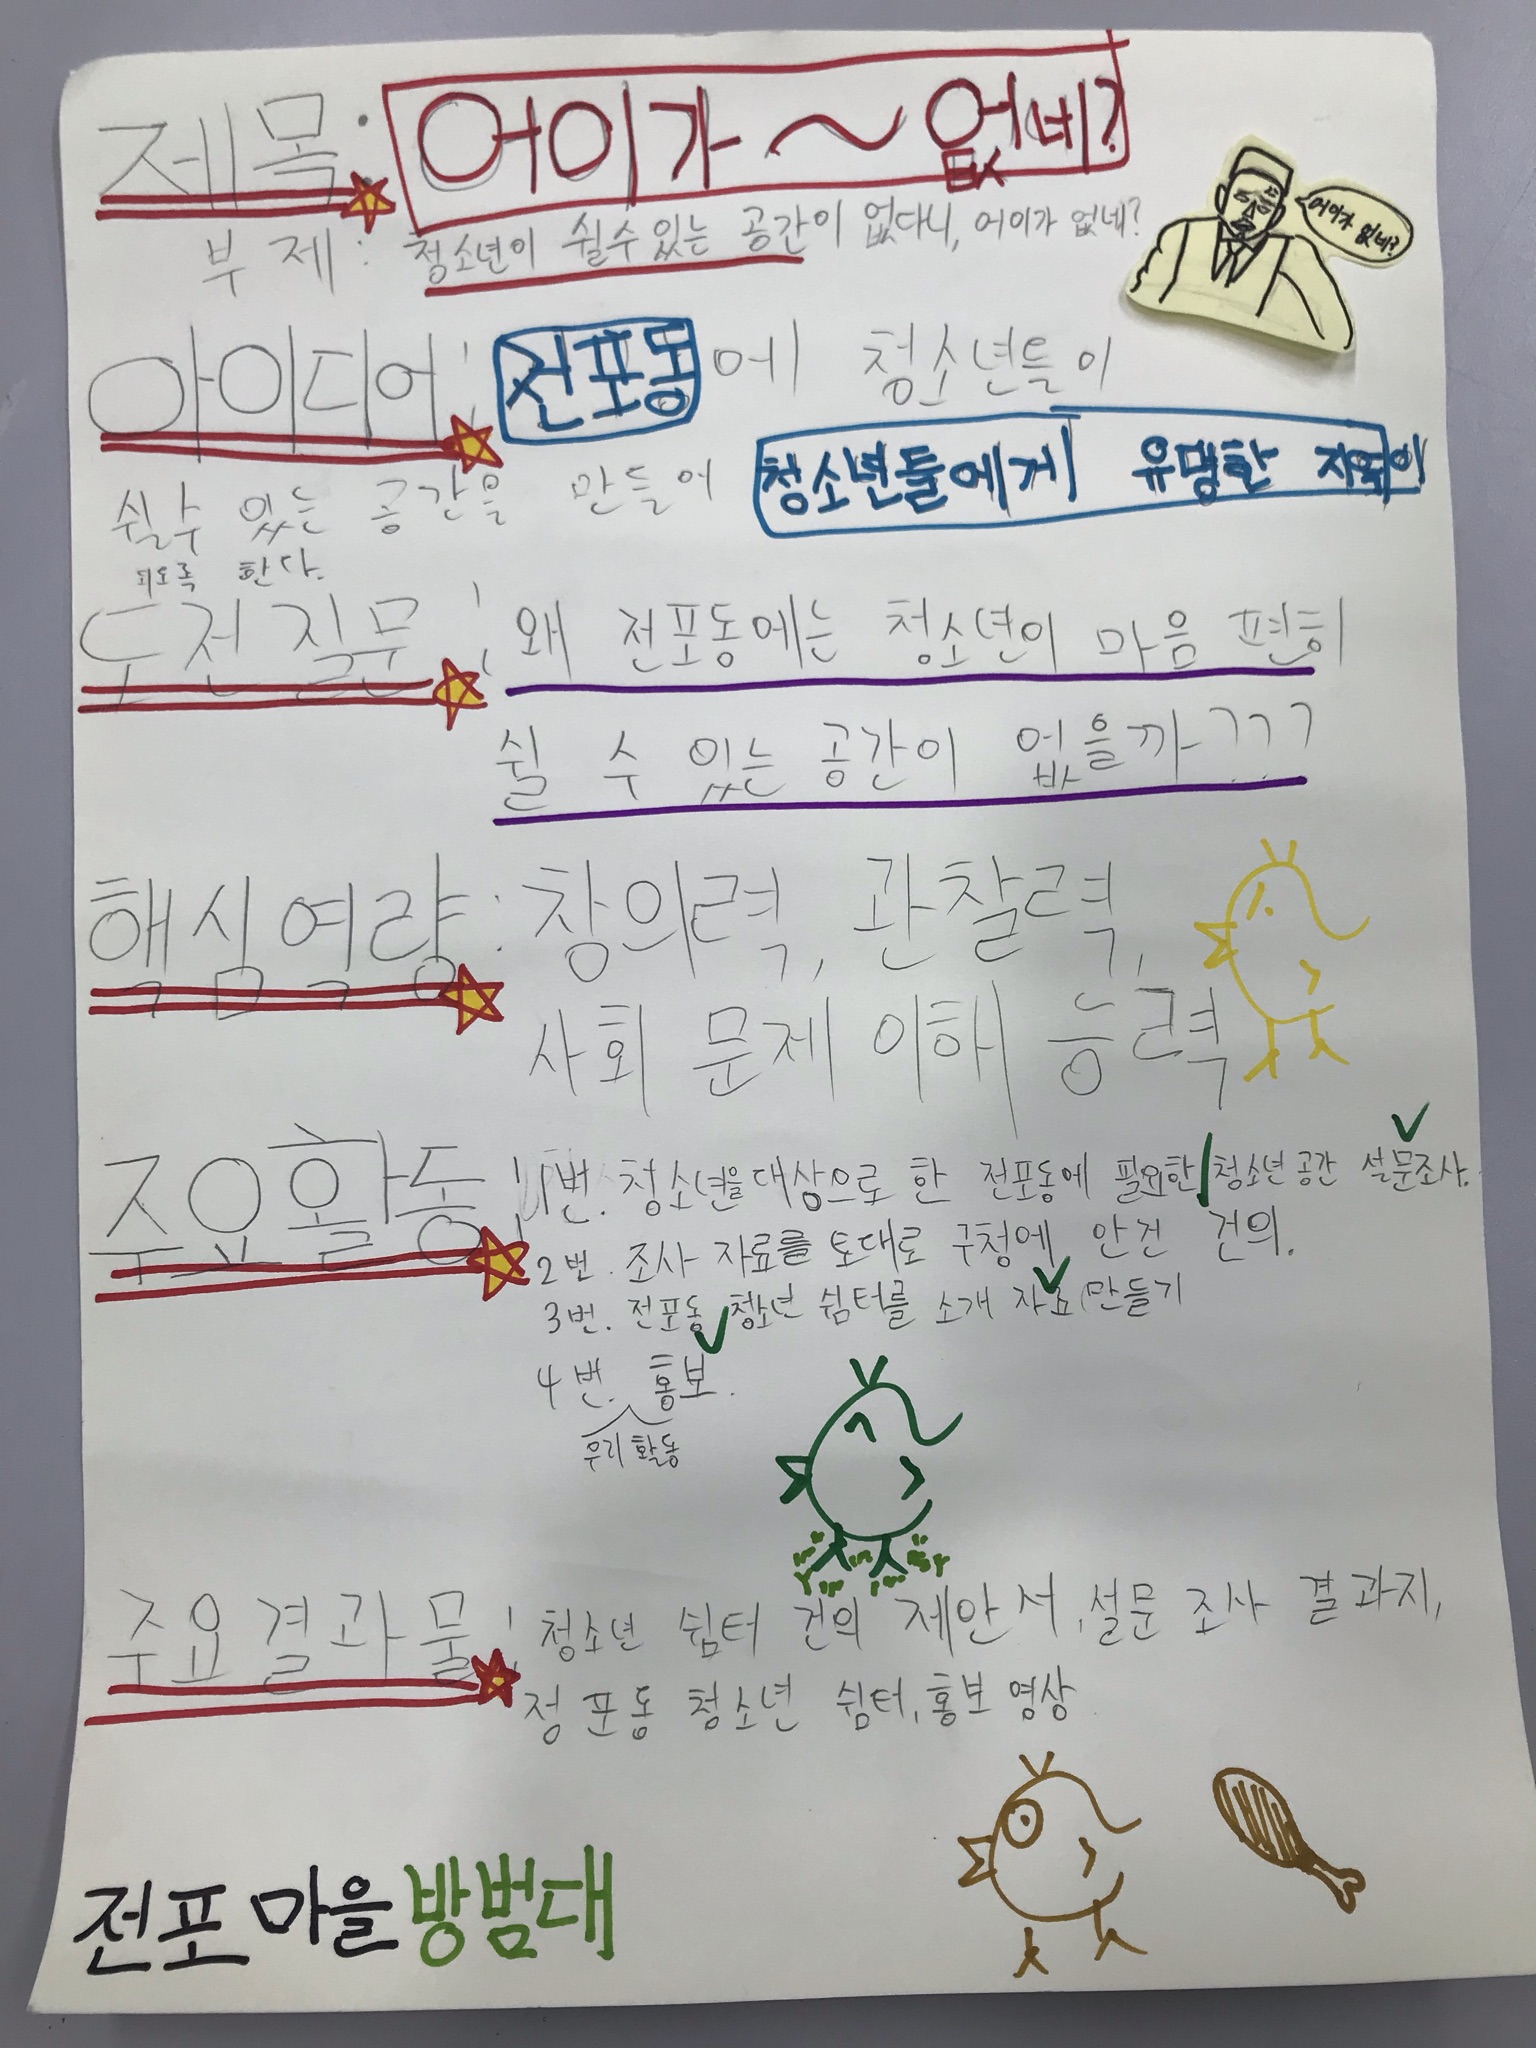 제목: 어이가~없네?
부제: 청소년이 쉴수있는 공간이 없다니, 어이가 없네?
어이가 없네?
아이디어: 전포동에 청소년들이
쉴수 있는 공간을 만들어 청소년들에게 유명한 지역이
되도록 한다.
도전질문: 왜 전포동에는 청소년이 마음 편히
쉴 수 있는 공간이 없을까???
핵심역량: 창의력, 관찰력,
사회 문제 이해 능력
주요활동: 1번. 청소년을 대상으로 한 전포동에 필요한 청소년 공간 설문조사.
2번. 조사 자료를 토대로 구청에 안건 건의.
3번. 전포동 청소년 쉼터를 소개 자료 만들기
4번. 홍보.
우리 활동
주요결과물: 청소년 쉼터 건의 제안서, 설문 조사 결과지,
정포동 청소년 쉼터, 홍보 영상
전포 마을 방범대